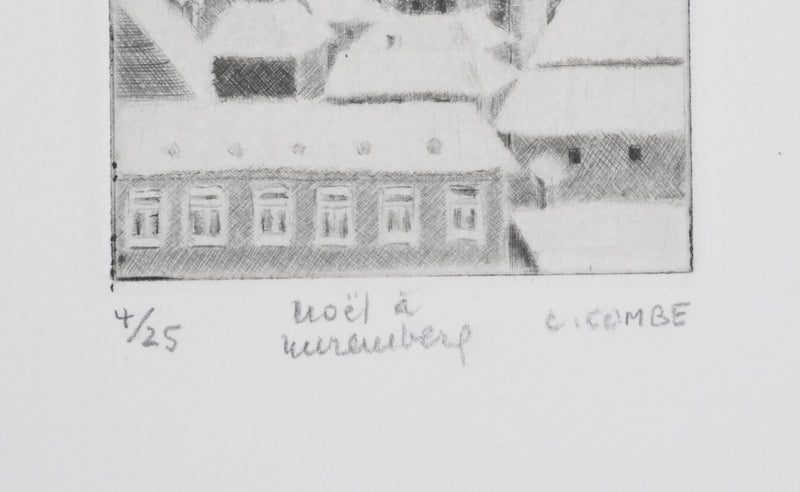 4/25
Noël à
nuremberg
C. COMBE